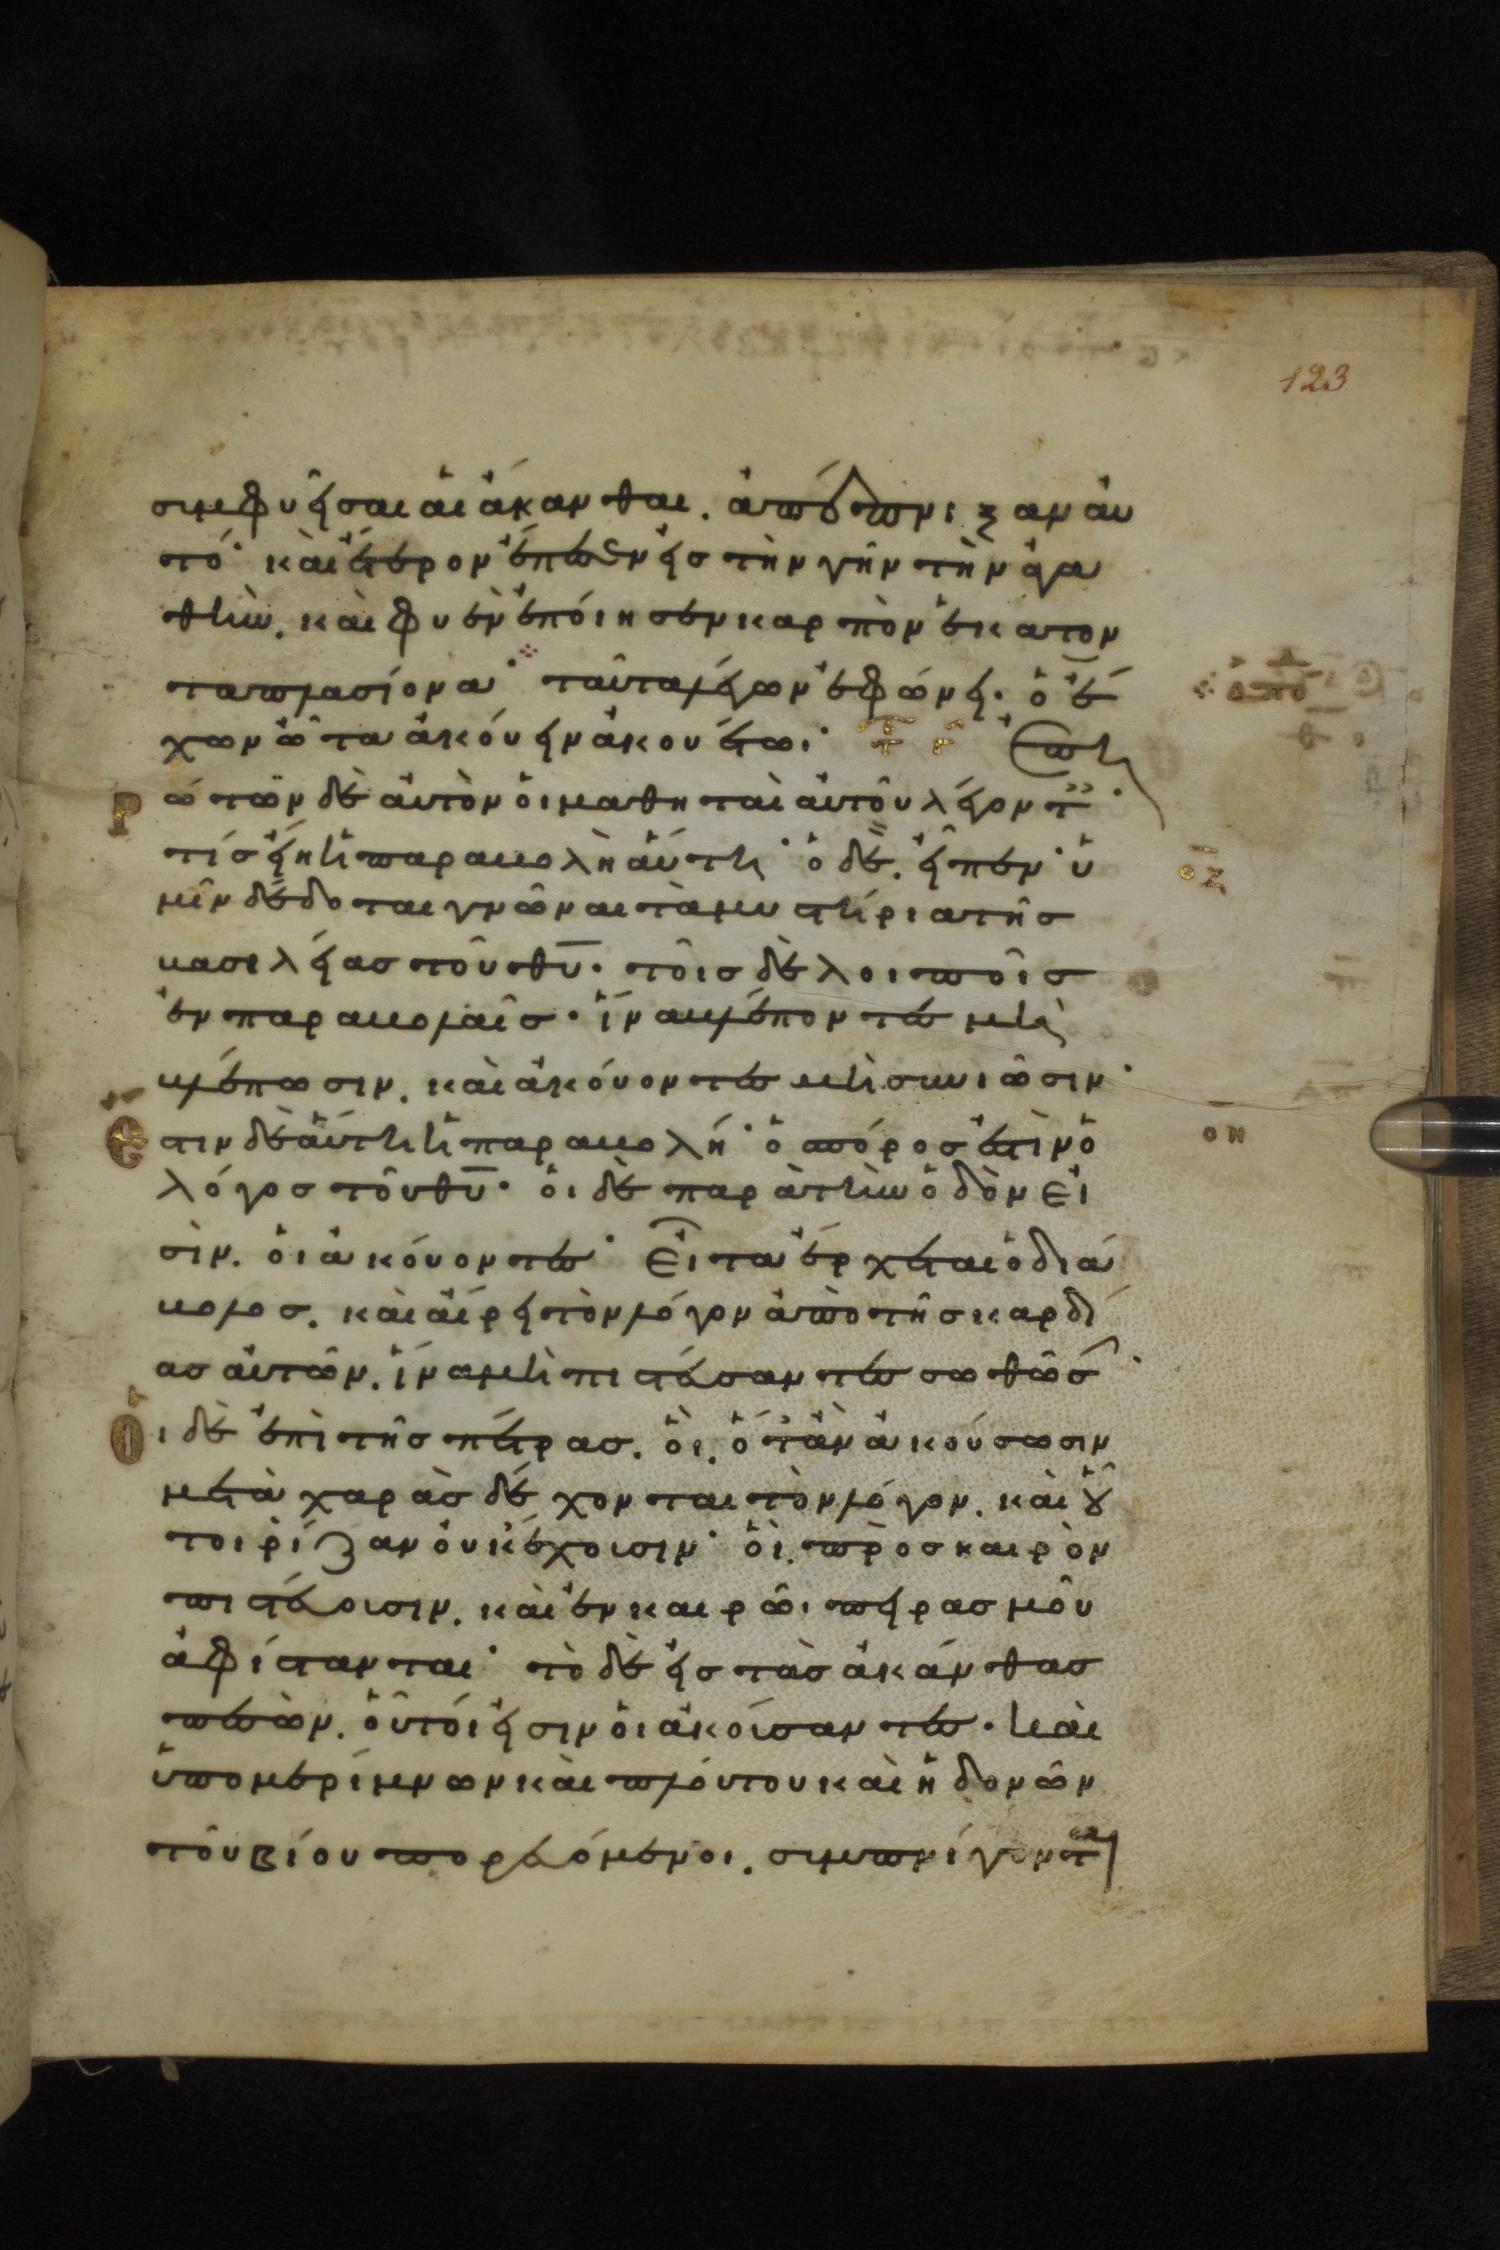 123
συμφυεῖσαι αἱ ἄκανθαι. ἀπέπνιξαν αὐ
τό· καὶ ἕτερον ἔπεσεν εἰς τὴν γῆν τὴν ἀγα
θὴν. καὶ φυὲν ἐποίησεν καρπὸν ἑκατον
ταπλασίονα· ταῦτα λέγων ἐφώνει· ὁ ἔ
χων ὦτα ἀκούειν ἀκουέτω·
Ἐπη
ρώτων δὲ αὐτὸν οἱ μαθηταὶ αὐτοῦ λέγοντ
τίς εἴη ἡ παραβολὴ αὕτη· ὁ δὲ. εἶπεν· ὑ
οζ
μῖν δέδοται γνῶναι τὰ μυστήρια τῆς
βασιλείας τοῦ θυ̅· τοῖς δὲ λοιποῖς
ἐν παραβολαῖς· ἵνα βλέποντες μὴ
βλέπωσιν. καὶ ἀκούοντες μὴ συνιῶσιν·
Ἔστιν δὲ αὕτη ἡ παραβολή· ὁ σπόρος ἐστὶν ὁ
οη
λόγος τοῦ θυ̅· οἱ δὲ παρὰ τὴν ὁδὸν εἰ
σὶν. οἱ ἀκούοντες· εἶτα ἔρχεται ὁ διά
βολος. καὶ αἴρει τὸν λόγον ἀπὸ τῆς καρδί
ας αὐτῶν. ἵνα μὴ πιστεύσαντες σωθῶσ
Οἱ δὲ ἐπὶ τῆς πέτρας. οἳ. ὅταν ἀκούσωσιν
μετὰ χαρᾶς δέχονται τὸν λόγον. καὶ οὗ
τοι ῥίζαν οὐκ ἔχουσιν· οἳ. πρὸς καιρὸν
πιστεύουσιν. καὶ ἐν καιρῶι πειρασμοῦ
ἀφίστανται· τὸ δὲ εἰς τὰς ἀκάνθας
πεσὸν. οὗτοί εἰσιν οἱ ἀκούσαντες· καὶ
ὑπὸ μεριμνων καὶ πλούτου καὶ ἡδονῶν
τοῦ βίου πορευόμενοι. συμπνίγοντ